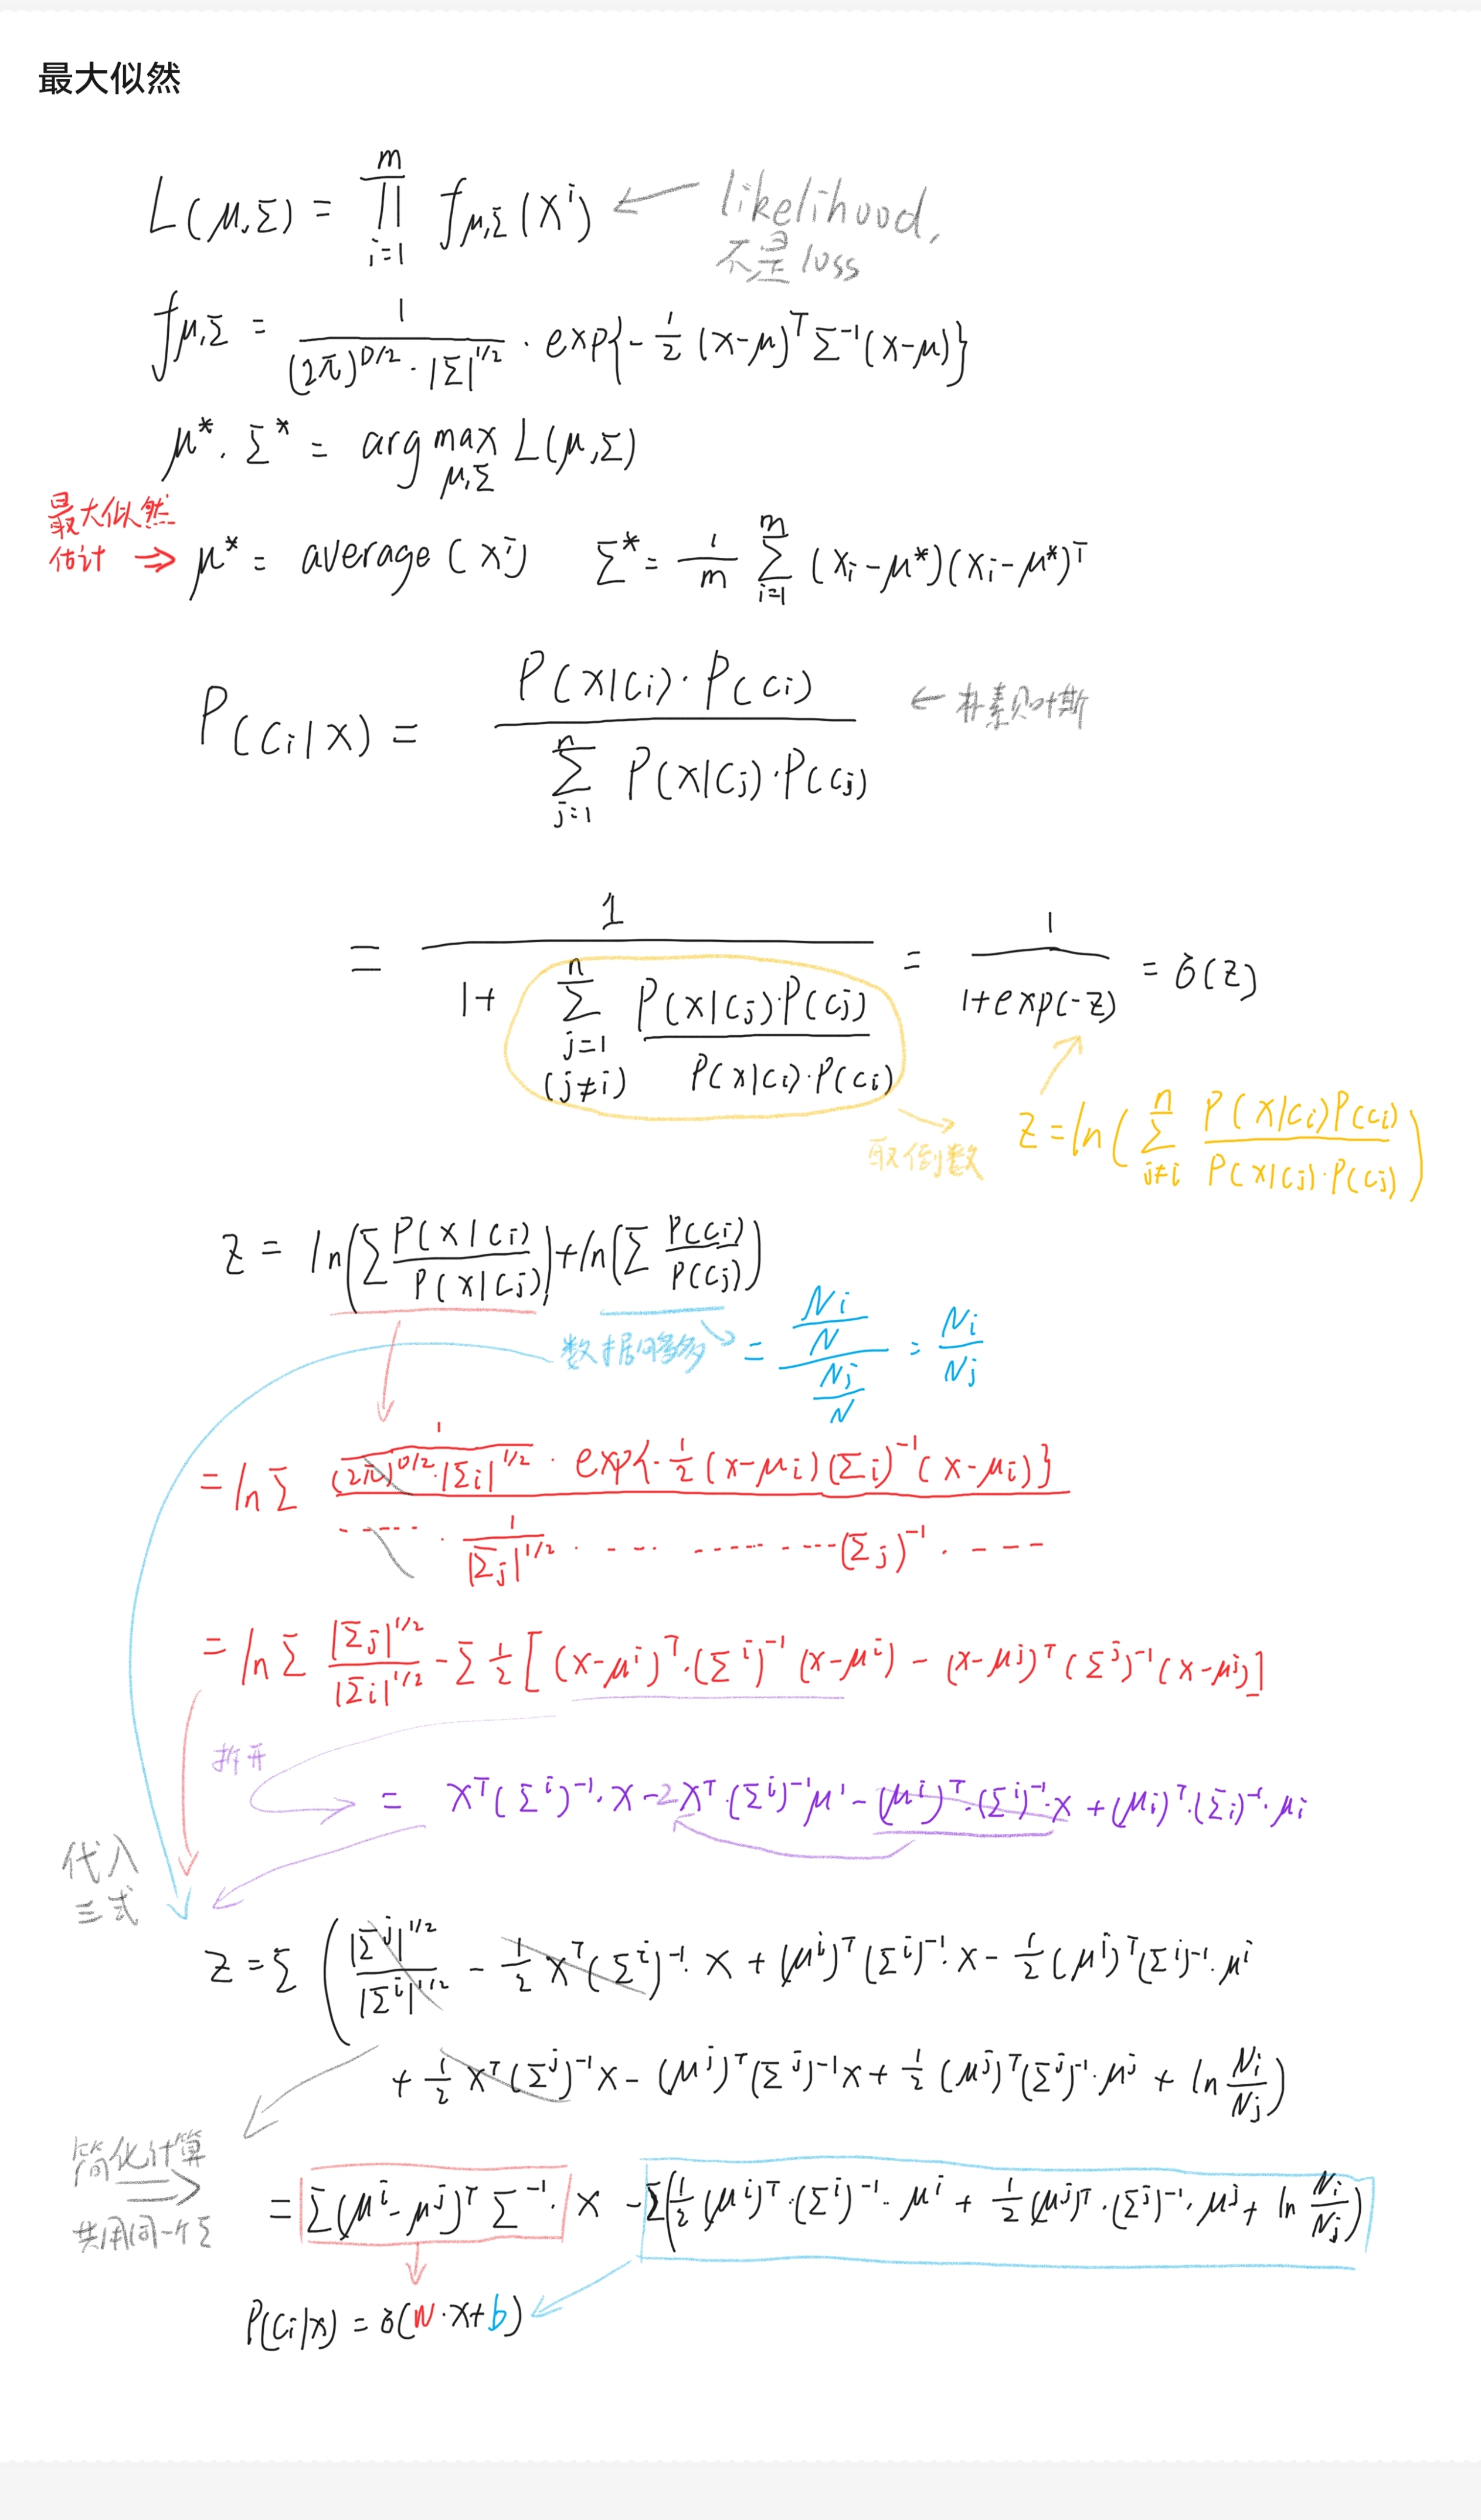 最大似然
L(μ,Σ) = ∏_{i=1}^{m} f_{μ,Σ}(x^i) ← likelihood,
不是loss
f_{μ,Σ} = 1/((2π)^{D/2}·|Σ|^{1/2}) · exp{-1/2 (x-μ)^T Σ^{-1}(x-μ)}
μ*, Σ* = arg max_{μ,Σ} L(μ,Σ)
最大似然
估计 ⇒ μ* = average(x^i) Σ* = 1/m Σ_{i=1}^{m} (x_i-μ*)(x_i-μ*)^T
P(C_i|x) = P(x|C_i)·P(C_i) / Σ_{j=1}^{n} P(x|C_j)·P(C_j) ← 朴素贝叶斯
= 1/(1+ Σ_{j=1 (j≠i)}^{n} P(x|C_j)·P(C_j)/P(x|C_i)·P(C_i)) = 1/(1+exp(-z)) = σ(z)
取倒数 z = ln(Σ_{j≠i}^{n} P(x|C_i)P(C_i)/P(x|C_j)·P(C_j))
z = ln(Σ P(x|C_i)/P(x|C_j)) + ln(Σ P(C_i)/P(C_j))
数据够多 = (N_i/N)/(N_j/N) = N_i/N_j
= ln Σ (1/((2π)^{D/2}·|Σ_i|^{1/2}) · exp{-1/2 (x-μ_i)(Σ_i)^{-1}(x-μ_i)}) / (······ · 1/|Σ_j|^{1/2} · ···· ·········(Σ_j)^{-1} · ----)
= ln Σ |Σ_j|^{1/2}/|Σ_i|^{1/2} - Σ 1/2 [(x-μ^i)^T·(Σ^i)^{-1}(x-μ^i) - (x-μ^j)^T(Σ^j)^{-1}(x-μ^j)]
拆开
= x^T(Σ^i)^{-1}·x - 2x^T·(Σ^i)^{-1}μ^i - (μ^i)^T·(Σ^i)^{-1}·x + (μ_i)^T·(Σ_i)^{-1}·μ_i
代入
三式
z = Σ ( |Σ^j|^{1/2}/|Σ^i|^{1/2} - 1/2 x^T(Σ^i)^{-1}·x + (μ^i)^T(Σ^i)^{-1}·x - 1/2 (μ^i)^T(Σ^i)^{-1}·μ^i
+ 1/2 x^T(Σ^j)^{-1}x - (μ^j)^T(Σ^j)^{-1}x + 1/2 (μ^j)^T(Σ^j)^{-1}·μ^j + ln N_i/N_j )
简化计算
共用同一个Σ
= Σ(μ^i-μ^j)^T Σ^{-1}· x - Σ(1/2 (μ^i)^T·(Σ^i)^{-1}· μ^i + 1/2 (μ^j)^T·(Σ^j)^{-1}·μ^j + ln N_i/N_j)
P(C_i|x) = σ(w·x+b)